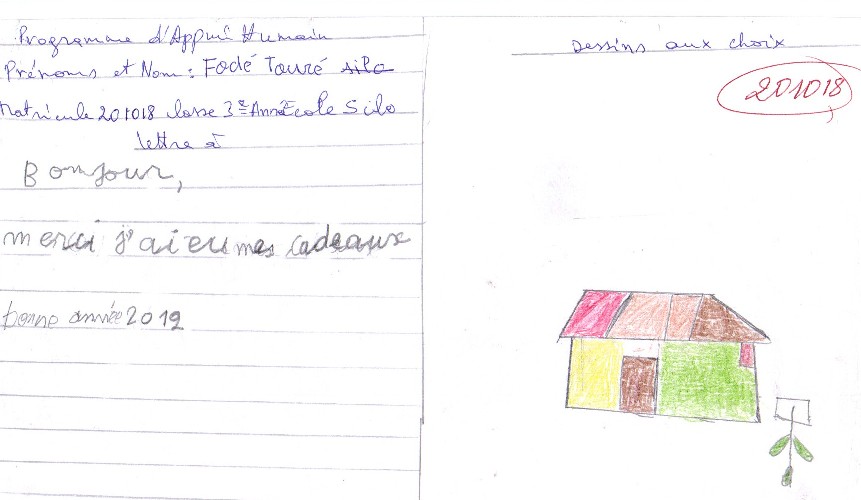 Programme d'Appui Humain
Prénoms et Nom : Fodé Touré silo
Matricule 201018 classe 3e Année Ecole Silo
lettre à
Bonjour,
merci j'ai eu mes cadeaux
bonne année 2019
Dessins aux choix
201018